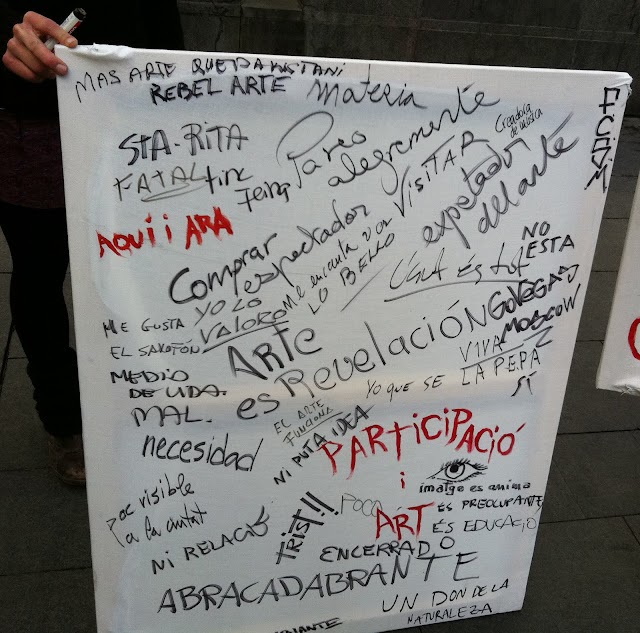 MAS ARTE
REBEL ARTE
Materia
STA. RITA
FATAL
Paseo
alegremente
VISITAR
Creadora
de música
espectador
del arte
AQUÍ i ARA
Comprar
espectador
Me encanta ver
LO BELLO
NO
ESTA
YO LO
VALORO
ME GUSTA
EL SAXOFÓN
MEDIO
DE VIDA.
MAL.
ARTE
es Revelación
MOSCOW
VIVA
LA PEPA
YO QUE SE
SI
EL ARTE
FUNCIONA
NI PUTA IDEA
necesidad
PARTICIPACIÓ
i
ART
imatge es anima
ÉS PREOCUPANTE
ÉS EDUCACIÓ
poc visible
a la ciutat
NI RELACIÓ
TRIST!!
POCO
ENCERRADO
ABRACADABRANTE
UN DON DE LA
NATURALEZA